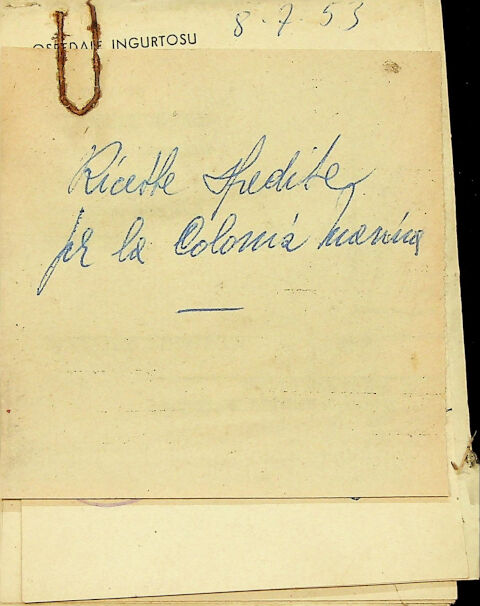 8.7.53
OSPEDALE INGURTOSU
Ricette Spedite
per la Colonia marina